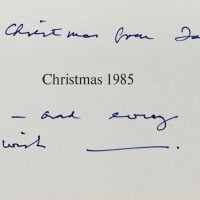 Christmas from
Christmas 1985
— and every
wish ———.